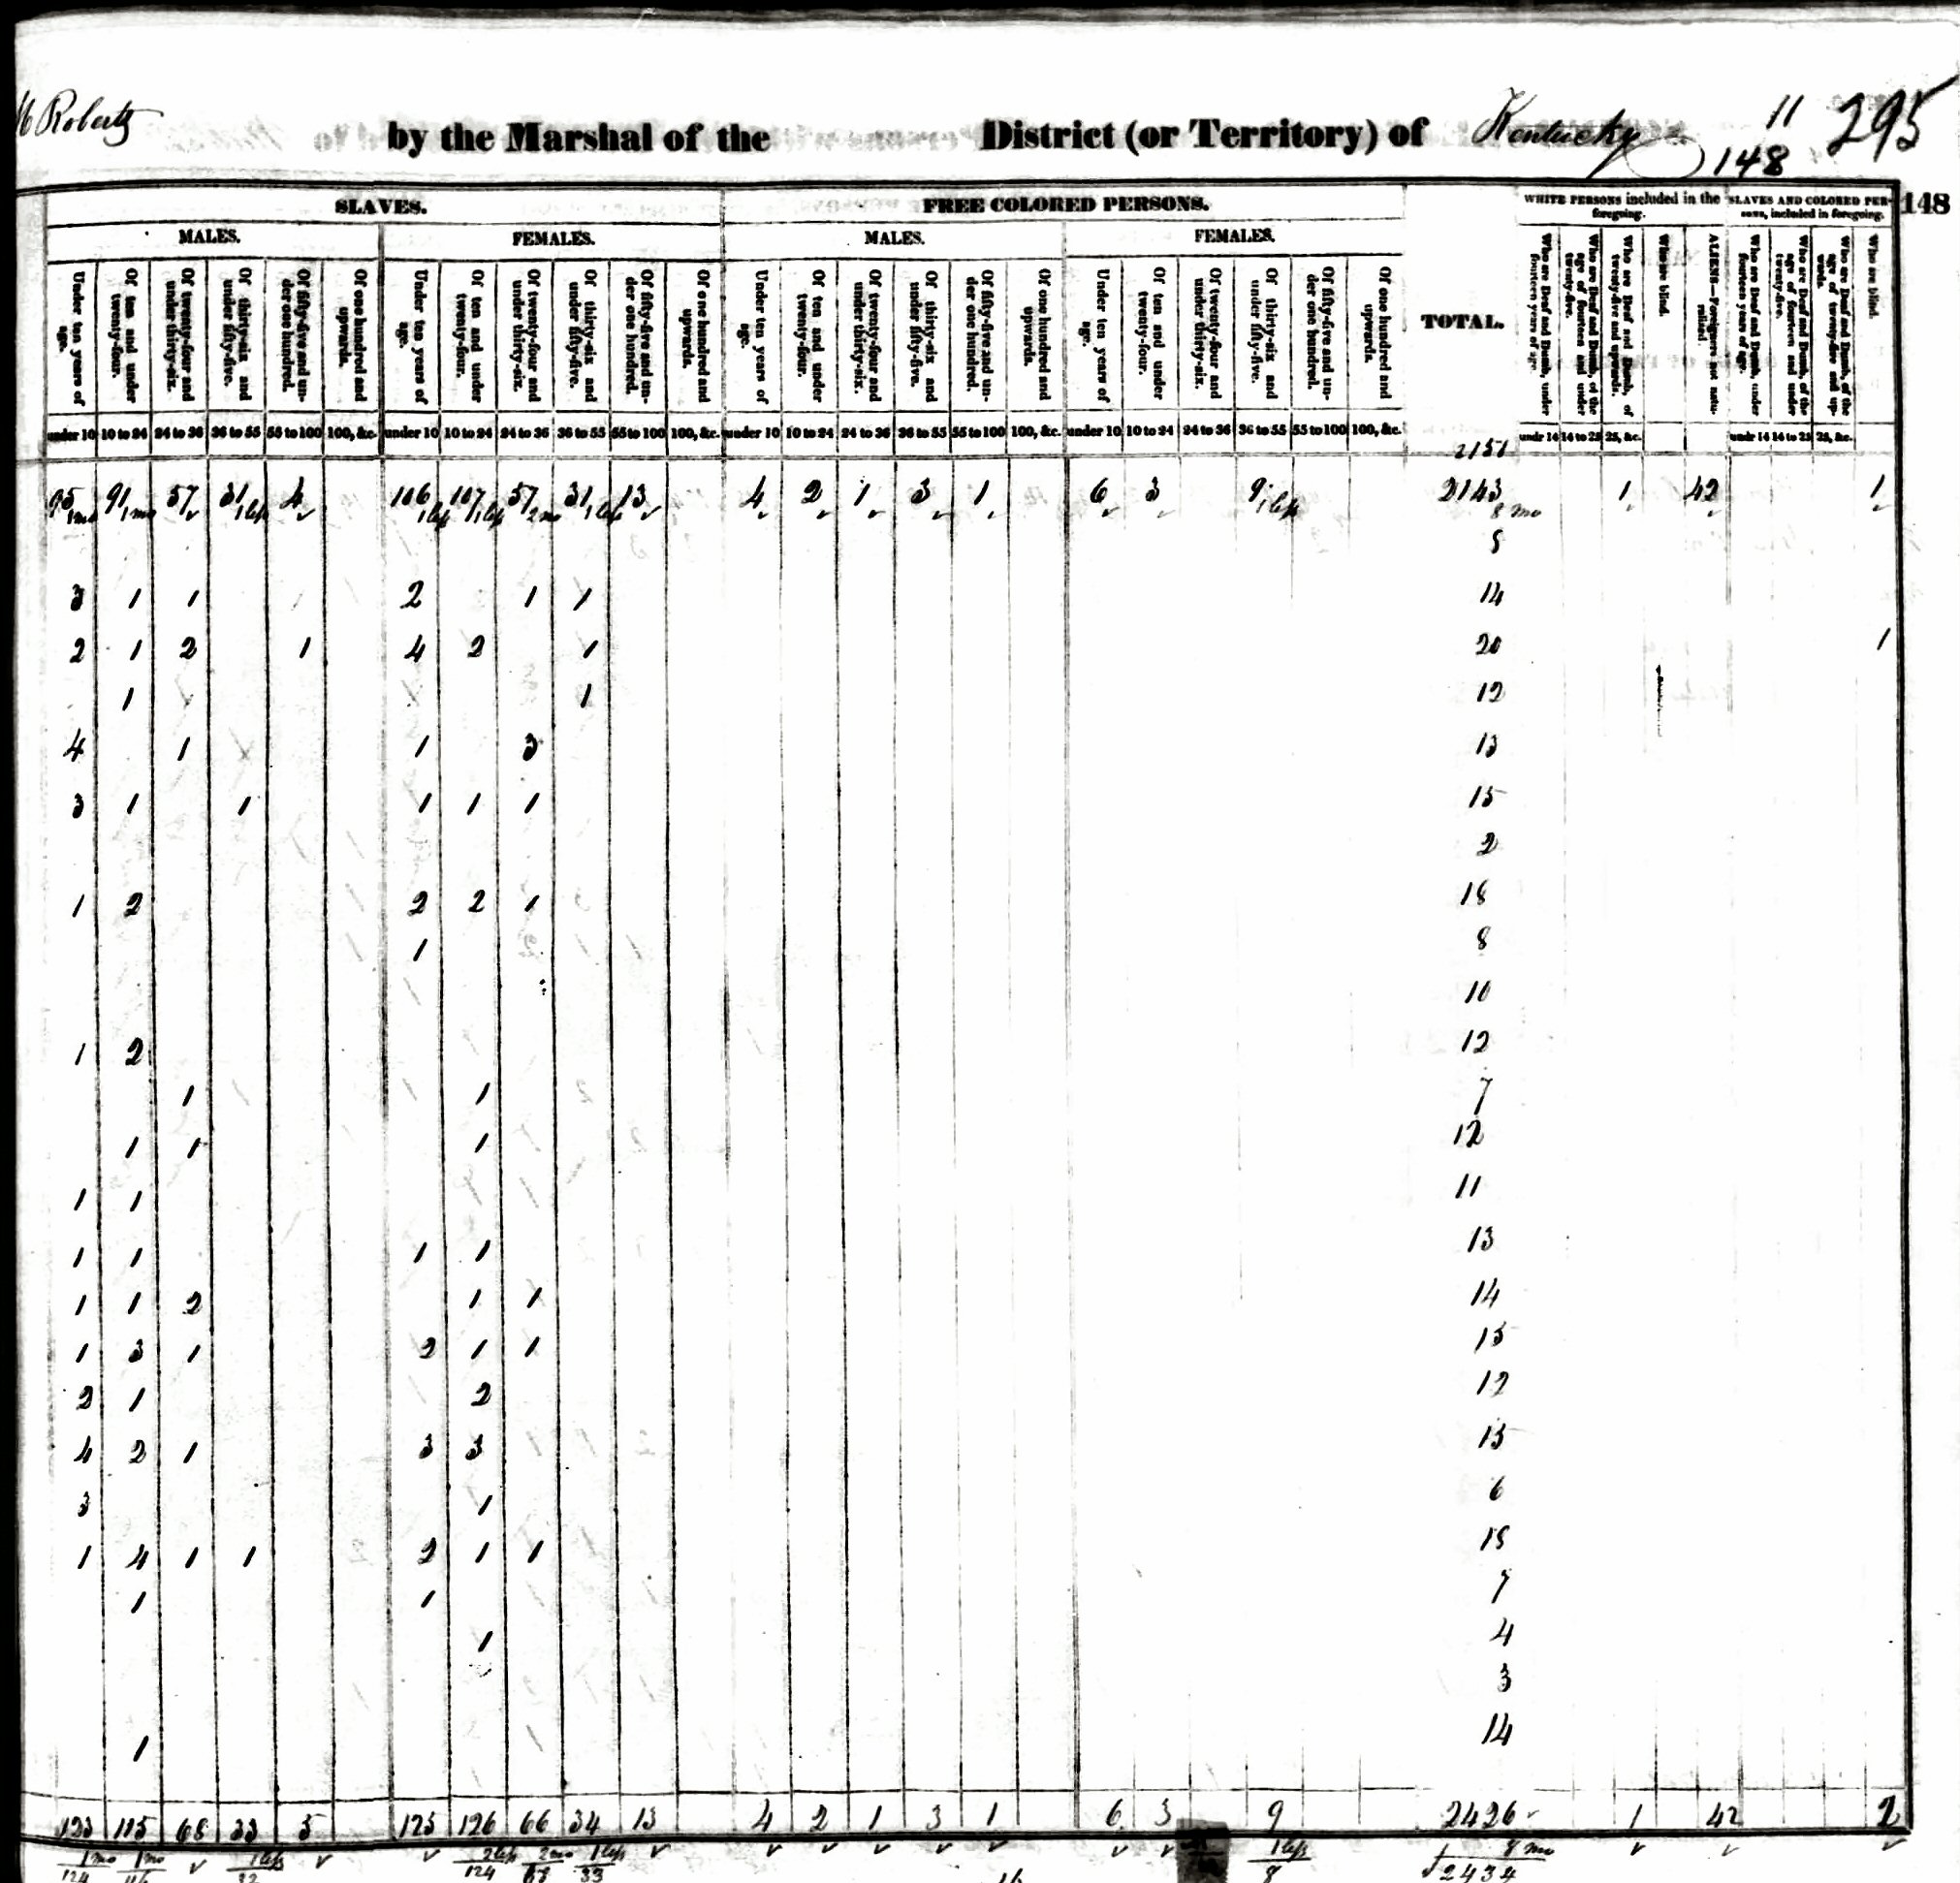 Roberts by the Marshal of the District (or Territory) of Kentucky 11 295
148
148
SLAVES. FREE COLORED PERSONS. TOTAL. WHITE PERSONS included in the foregoing. SLAVES AND COLORED PERSONS, included in foregoing.
MALES. FEMALES. MALES. FEMALES.
Under ten years of age. Of ten and under twenty-four. Of twenty-four and under thirty-six. Of thirty-six and under fifty-five. Of fifty-five and under one hundred. Of one hundred and upwards. Under ten years of age. Of ten and under twenty-four. Of twenty-four and under thirty-six. Of thirty-six and under fifty-five. Of fifty-five and under one hundred. Of one hundred and upwards. Under ten years of age. Of ten and under twenty-four. Of twenty-four and under thirty-six. Of thirty-six and under fifty-five. Of fifty-five and under one hundred. Of one hundred and upwards. Under ten years of age. Of ten and under twenty-four. Of twenty-four and under thirty-six. Of thirty-six and under fifty-five. Of fifty-five and under one hundred. Of one hundred and upwards. Who are Deaf and Dumb, under fourteen years of age. Who are Deaf and Dumb, of the age of fourteen and under twenty-five. Who are Deaf and Dumb, of twenty-five and upwards. Who are blind. ALIENS—Foreigners not naturalized. Who are Deaf and Dumb, under fourteen years of age. Who are Deaf and Dumb, of the age of fourteen and under twenty-five. Who are Deaf and Dumb, of the age of twenty-five and upwards. Who are blind.
under 10 10 to 24 24 to 36 36 to 55 55 to 100 100, &c. under 10 10 to 24 24 to 36 36 to 55 55 to 100 100, &c. under 10 10 to 24 24 to 36 36 to 55 55 to 100 100, &c. under 10 10 to 24 24 to 36 36 to 55 55 to 100 100, &c. undr 14 14 to 25 25, &c. undr 14 14 to 25 25, &c.
2151
95 91 57 31 4 106 107 57 31 13 4 2 1 3 1 6 3 9 2143 1 42 1
1 mo 1 mo 1 less 1 less 1 less 2 mo 1 less 1 less 8 mo
5
3 1 1 2 1 1 14
2 1 2 1 4 2 1 20 1
1 1 12
4 1 1 3 13
3 1 1 1 1 1 15
2
1 2 2 2 1 18
1 8
10
1 2 12
1 1 7
1 1 1 12
1 1 11
1 1 1 1 13
1 1 2 1 1 14
1 3 1 2 1 1 15
2 1 2 12
4 2 1 3 3 15
3 1 6
1 4 1 1 2 1 1 18
1 1 7
1 4
3
1 14
123 115 68 33 5 125 126 66 34 13 4 2 1 3 1 6 3 9 2426 1 42 2
1 mo 1 mo 1 less 2 less 2 mo 1 less 1 less 8 mo
124 116 32 124 68 33 16 8 2434